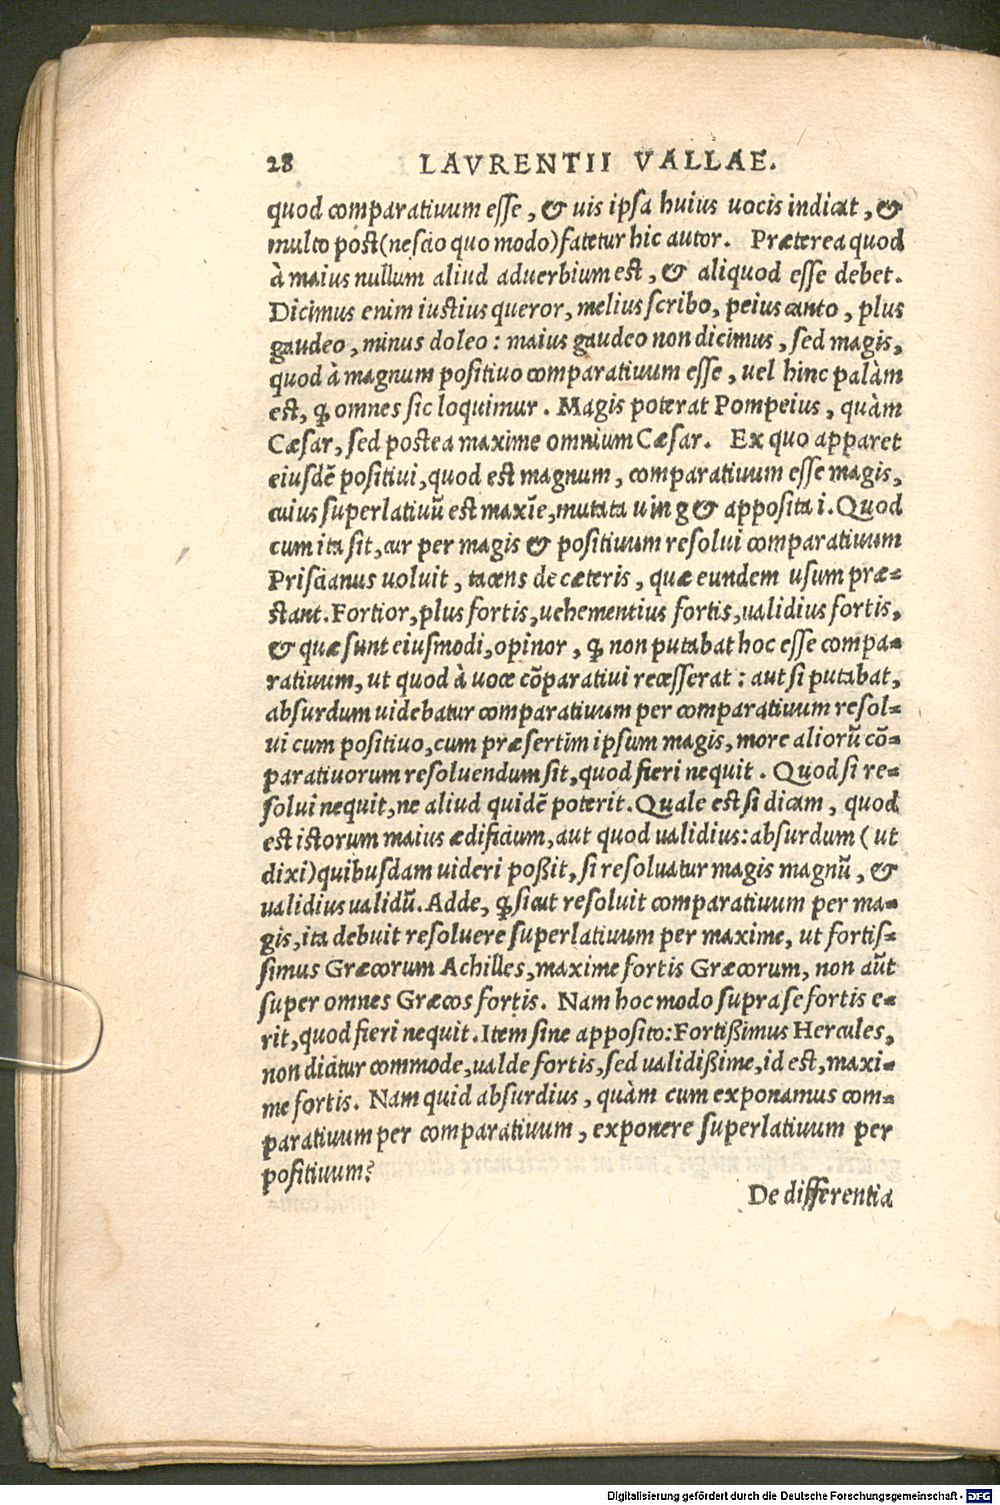 28 LAVRENTII VALLAE.
quod comparatiuum esse, & uis ipsa huius uocis indicat, &
multo post (nescio quo modo) fatetur hic autor. Præterea quod
à maius nullum aliud aduerbium est, & aliquod esse debet.
Dicimus enim iustius queror, melius scribo, peius canto, plus
gaudeo, minus doleo: maius gaudeo non dicimus, sed magis,
quod à magnum positiuo comparatiuum esse, uel hinc palàm
est, ꝙ omnes sic loquimur. Magis poterat Pompeius, quàm
Cæsar, sed postea maxime omnium Cæsar. Ex quo apparet
eiusdē positiui, quod est magnum, comparatiuum esse magis,
cuius superlatiuū est maxīe, mutata u in g & apposita i. Quod
cum ita sit, cur per magis & positiuum resolui comparatiuum
Priscianus uoluit, tacens de cæteris, quæ eundem usum præ=
stant. Fortior, plus fortis, uehementius fortis, ualidius fortis,
& quæ sunt eiusmodi, opinor, ꝙ non putabat hoc esse compa=
ratiuum, ut quod à uoce cōparatiui recesserat: aut si putabat,
absurdum uidebatur comparatiuum per comparatiuum resol=
ui cum positiuo, cum præsertim ipsum magis, more aliorū cō=
paratiuorum resoluendum sit, quod fieri nequit. Quod si re=
solui nequit, ne aliud quidē poterit. Quale est si dicam, quod
est istorum maius ædificium, aut quod ualidius: absurdum (ut
dixi) quibusdam uideri poßit, si resoluatur magis magnū, &
ualidius ualidū. Adde, ꝙ sicut resoluit comparatiuum per ma=
gis, ita debuit resoluere superlatiuum per maxime, ut fortis=
simus Græcorum Achilles, maxime fortis Græcorum, non aūt
super omnes Græcos fortis. Nam hoc modo supra se fortis e=
rit, quod fieri nequit. Item sine apposito: Fortißimus Hercules,
non dicitur commode, ualde fortis, sed ualidißime, id est, maxi=
me fortis. Nam quid absurdius, quàm cum exponamus com=
paratiuum per comparatiuum, exponere superlatiuum per
positiuum?
De differentia
Digitalisierung gefördert durch die Deutsche Forschungsgemeinschaft - DFG